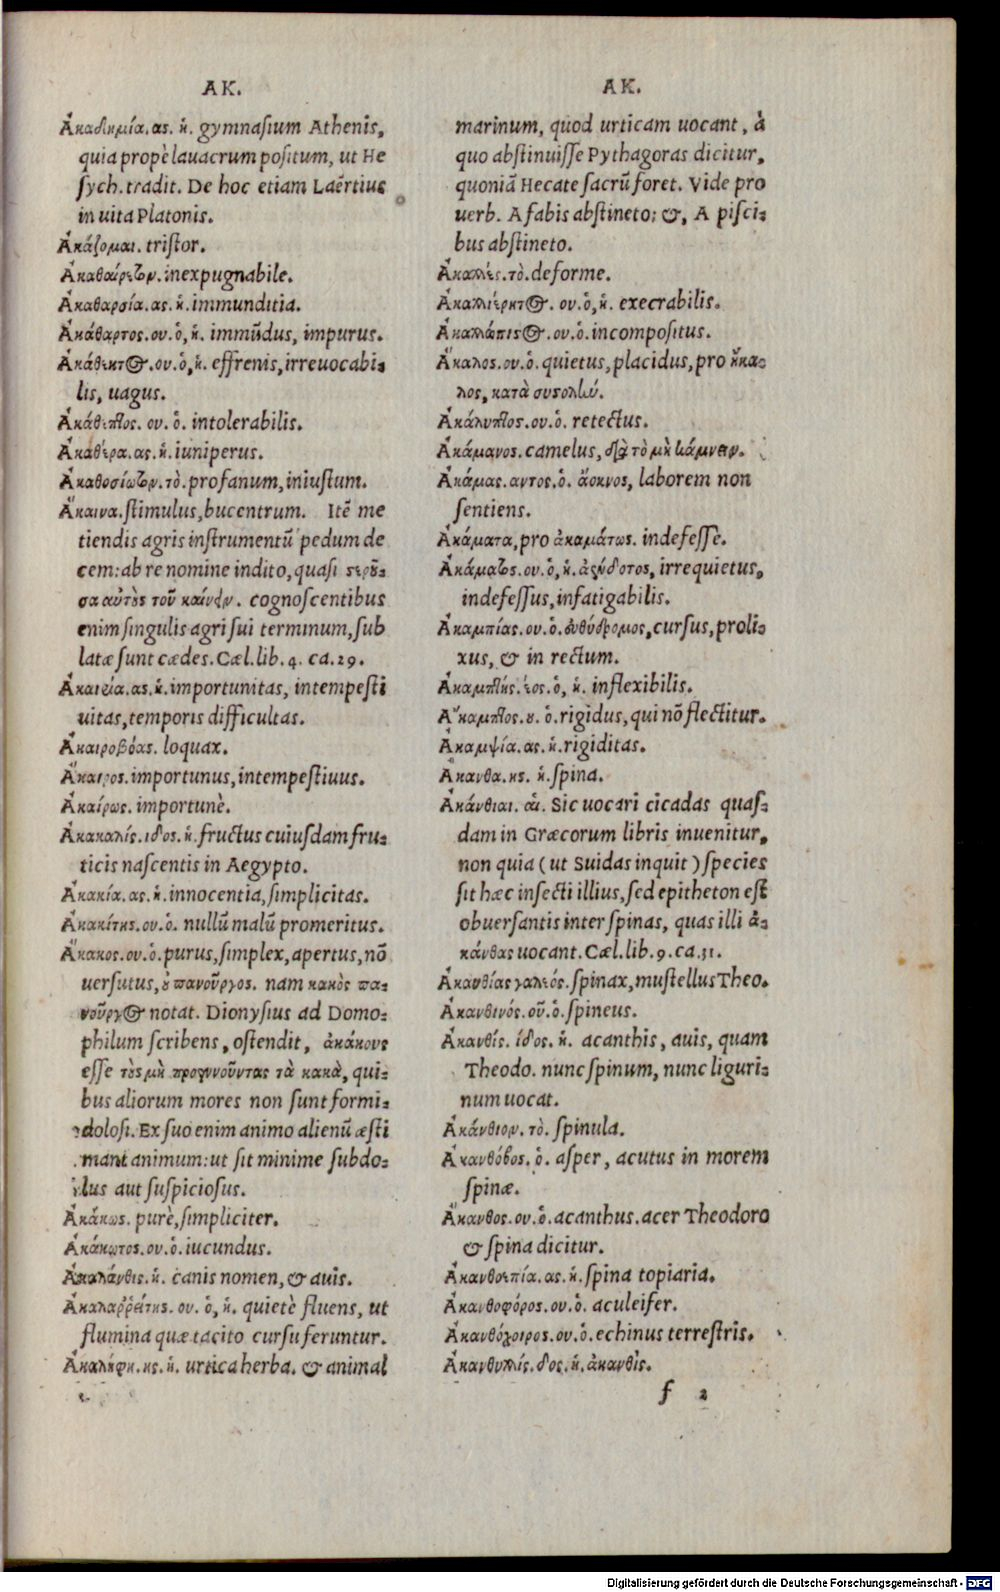 AK.
Ἀκαδημία.ας.ἡ. gymnasium Athenis,
quia propè lauacrum positum, ut He
sych. tradit. De hoc etiam Laërtius
in uita Platonis.
Ἀκάζομαι. tristor.
Ἀκαθαίρετον. inexpugnabile.
Ἀκαθαρσία.ας.ἡ. immunditia.
Ἀκάθαρτος.ου.ὁ,ἡ. immũdus, impurus.
Ἀκάθεκτος.ου.ὁ,ἡ. effrenis, irreuocabi-
lis, uagus.
Ἀκάθεπτος. ου. ὁ. intolerabilis.
Ἀκάθερα.ας.ἡ. iuniperus.
Ἀκαθοσίωτον.τὸ. profanum, iniustum.
Ἄκαινα. stimulus, bucentrum. Itẽ me
tiendis agris instrumentũ pedum de
cem: ab re nomine indito, quasi στεροῦ-
σα αὐτοὺς τοῦ καίνειν. cognoscentibus
enim singulis agri sui terminum, sub
latæ sunt cædes. Cæl. lib. 4. ca. 29.
Ἀκαιρία.ας.ἡ. importunitas, intempesti
uitas, temporis difficultas.
Ἀκαιροβόας. loquax.
Ἄκαιρος. importunus, intempestiuus.
Ἀκαίρως. importunè.
Ἀκακαλίς.ιδος.ἡ. fructus cuiusdam fru-
ticis nascentis in Aegypto.
Ἀκακία.ας.ἡ. innocentia, simplicitas.
Ἀκακίτης.ου.ὁ. nullũ malũ promeritus.
Ἄκακος.ου.ὁ. purus, simplex, apertus, nõ
uersutus, ὁ πανοῦργος. nam κακὸς πα-
νοῦργος notat. Dionysius ad Domo-
philum scribens, ostendit, ἀκάκους
esse τοὺς μὴ προγνοῦντας τὰ κακὰ, qui-
bus aliorum mores non sunt formi-
dolosi. Ex suo enim animo alienũ æsti
mant animum: ut sit minime subdo-
lus aut suspiciosus.
Ἀκάκως. purè, simpliciter.
Ἀκάκωτος.ου.ὁ. iucundus.
Ἀκαλάνθις.ἡ. canis nomen, & auis.
Ἀκαλαῤῥείτης. ου. ὁ, ἡ. quietè fluens, ut
flumina quæ tacito cursu feruntur.
Ἀκαλήφη.ης.ἡ. urtica herba. & animal
AK.
marinum, quod urticam uocant, à
quo abstinuisse Pythagoras dicitur,
quoniã Hecate sacrũ foret. Vide pro
uerb. A fabis abstineto: &, A pisci-
bus abstineto.
Ἀκαλλές.τὸ. deforme.
Ἀκαλλιέρητος. ου.ὁ,ἡ. execrabilis.
Ἀκαλλώπιστος.ου.ὁ. incompositus.
Ἄκαλος.ου.ὁ. quietus, placidus, pro ἥκα-
λος, κατὰ συστολήν.
Ἀκάλυπτος.ου.ὁ. retectus.
Ἀκάμανος. camelus, διὰ τὸ μὴ κάμνειν.
Ἀκάμας.αντος.ὁ. ἄοκνος, laborem non
sentiens.
Ἀκάματα, pro ἀκαμάτως. indefesse.
Ἀκάματος.ου.ὁ,ἡ. ἀένδοτος, irrequietus,
indefessus, infatigabilis.
Ἀκαμπίας.ου.ὁ. εὐθύδρομος, cursus, proli-
xus, & in rectum.
Ἀκαμπτὴς.έος.ὁ, ἡ. inflexibilis.
Ἄκαμπτος.ου. ὁ. rigidus, qui nõ flectitur.
Ἀκαμψία.ας.ἡ. rigiditas.
Ἄκανθα.ης. ἡ. spina.
Ἀκάνθιαι. αἱ. Sic uocari cicadas quas-
dam in Græcorum libris inuenitur,
non quia (ut Suidas inquit) species
sit hæc insecti illius, sed epitheton est
obuersantis inter spinas, quas illi ἀ-
κάνθας uocant. Cæl. lib. 9. ca. 31.
Ἀκανθίας γαλεός. spinax, mustellus Theo.
Ἀκανθινός.οῦ.ὁ. spineus.
Ἀκανθίς. ίδος. ἡ. acanthis, auis, quam
Theodo. nunc spinum, nunc liguri-
num uocat.
Ἀκάνθιον. τὸ. spinula.
Ἀκανθόβος. ὁ. asper, acutus in morem
spinæ.
Ἄκανθος.ου.ὁ. acanthus. acer Theodoro
& spina dicitur.
Ἀκανθοεπία.ας.ἡ. spina topiaria.
Ἀκανθοφόρος.ου.ὁ. aculeifer.
Ἀκανθόχοιρος.ου.ὁ. echinus terrestris.
Ἀκανθυλλίς.δος.ἡ. ἀκανθὶς.
f 2
Digitalisierung gefördert durch die Deutsche Forschungsgemeinschaft - DFG